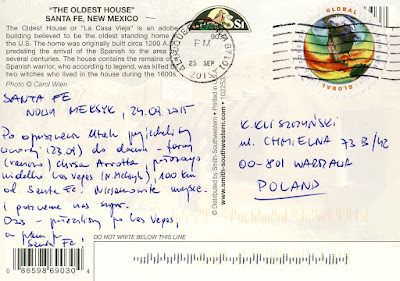 "THE OLDEST HOUSE"
SANTA FE, NEW MEXICO
The Oldest House or "La Casa Vieja" is an adobe
building believed to be the oldest standing home
the U.S. The home was originally built circa 1200 A.
predating the arrival of the Spanish to the area
several centuries. The house contains the remains of
Spanish warrior, who according to legend, was killed by
two witches who lived in the house during the 1600s.
Photo © Carol Wien
SANTA FE
NOWY MEKSYK, 24.09.2015
Po opuszczeniu Utah przyjechaliśmy
wczoraj (23.09) do domu - farmy
(rancza) Chrisa
Las Vegas (N. Meksyk), 100 km
od Santa Fe. Niesamowite miejsce
i
Dziś - po Las Vegas,
a
Santa Fe!
DO NOT WRITE BELOW THIS LINE
0 86598 69030 4
© Distributed by Smith-Southwestern
www.smith-southwestern.com
Printed in
PM
25 SEP
2015
GLOBAL
GLOBAL
K. KLISZCZYŃSKI
ul. CHMIELNA 73 B/42
00-801 WARSZAWA
POLAND